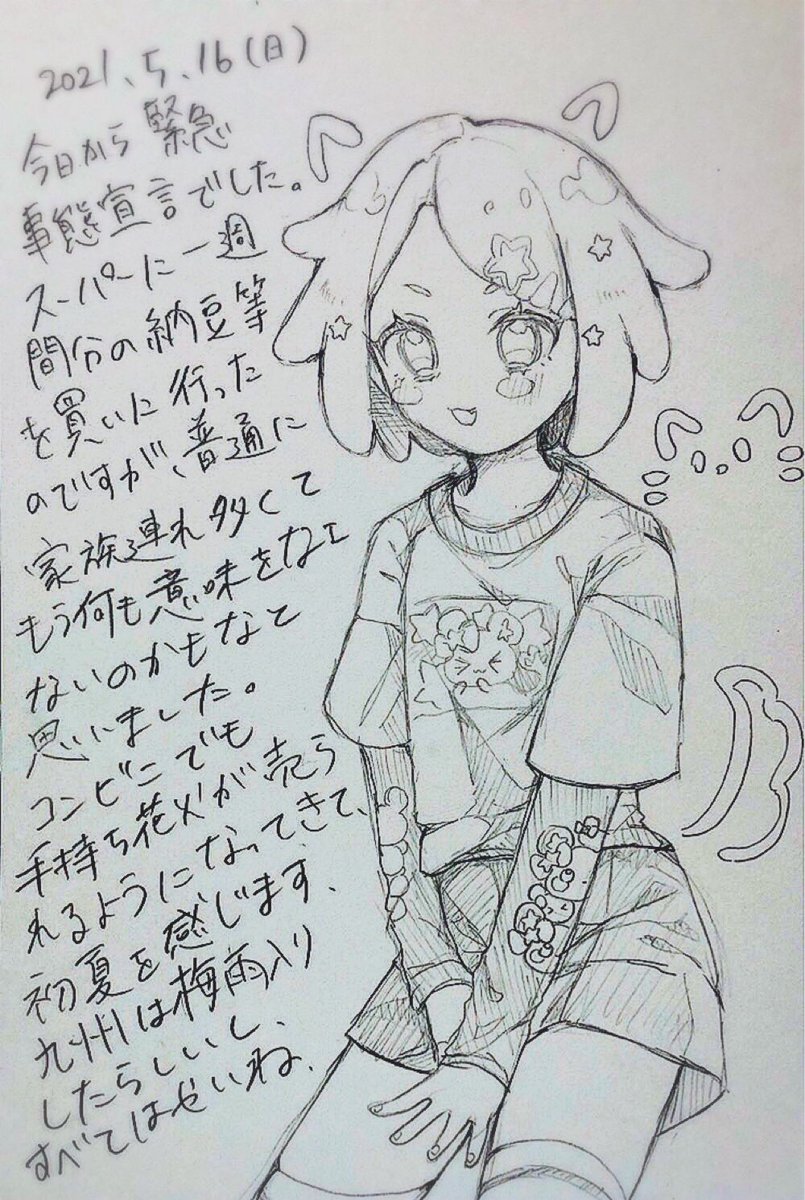 2021.5.16(日)
今日から緊急
事態宣言でした。
スーパーに一週
間分の納豆等
を買いに行った
のですが、普通に
家族連れ多くて
もう何も意味をなェ
ないのかもなと
思いました。
コンビニでも
手持ち花火が売ら
れるようになってきて、
初夏を感じます、
九州は梅雨入り
したらしいし、
すべてはせいね、